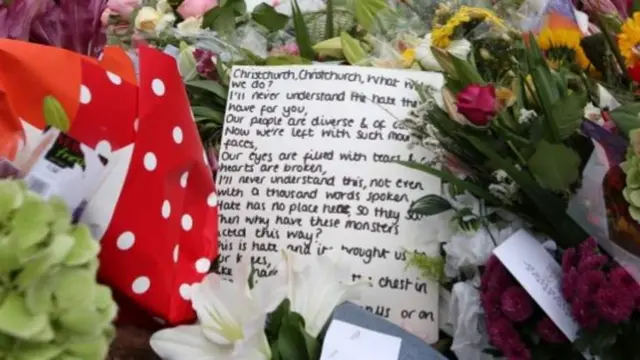 Christchurch, Christchurch, What
we do?
I'll never understand the hate
have for you,
Our people are diverse & of
Now we're left with such
faces,
Our eyes are filled with tears &
hearts are broken,
I'll never understand this, not even
with a thousand words spoken,
Hate has no place here, so they
Then why have these monsters
acted this way?
This is hate and brought us
the chest in
or on